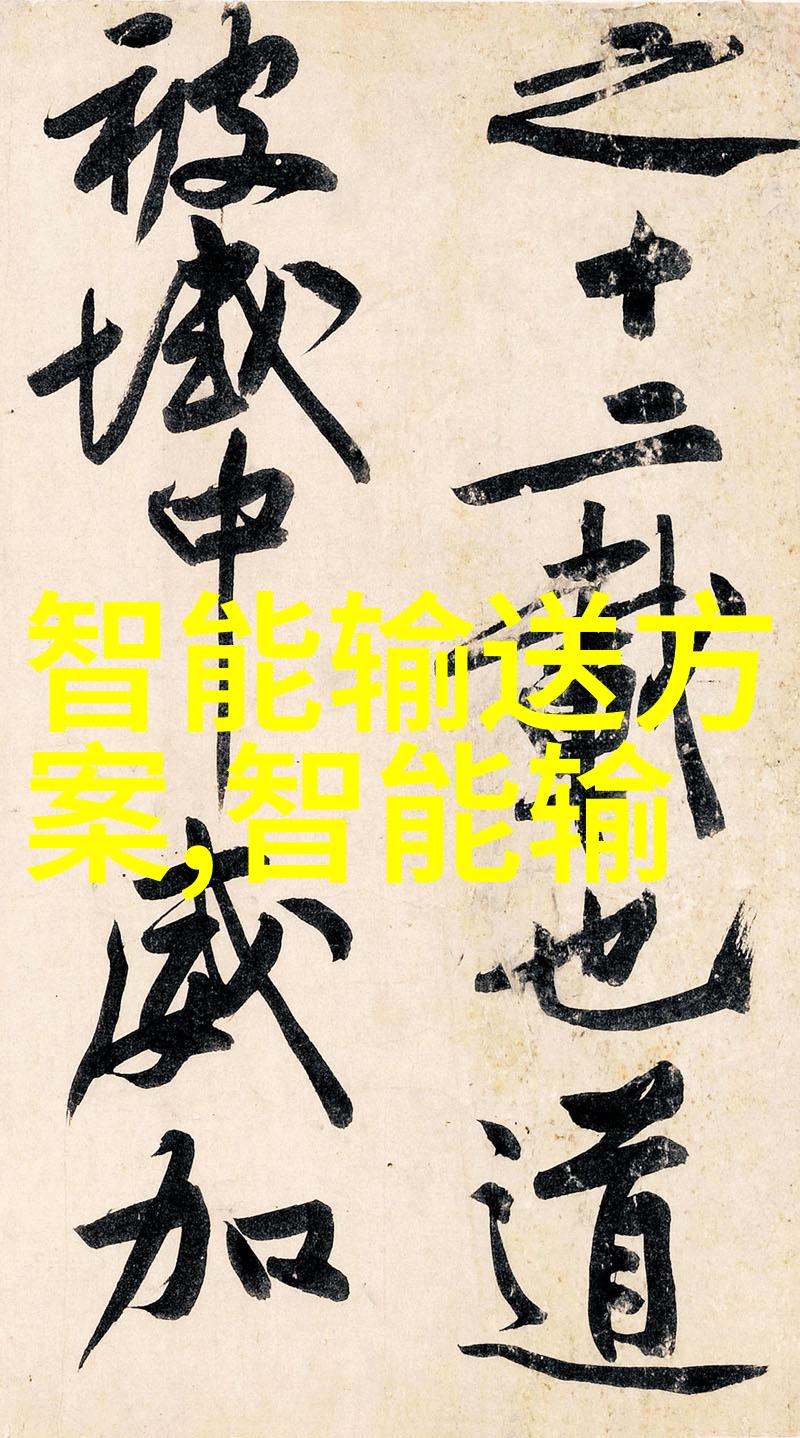 之十二載也道
被域中威加
智能输送方
案,智能输